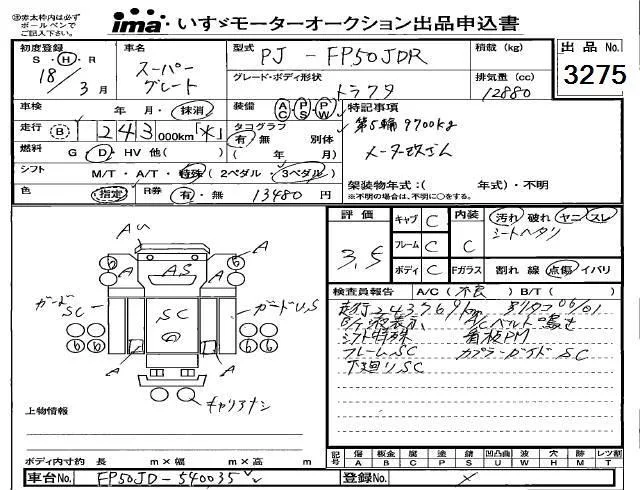 ※赤太枠内は必ず
ボールペンで
ご記入下さい。
ima いすゞモーターオークション出品申込書
初度登録 車名 型式 PJ - FP50JDR 積載 (kg) 出品 No.
S・H・R 18年 3月
スーパーグレート
グレード・ボディ形状 トラクタ
排気量 (cc) 12880
3275
車検 年・月・抹消 装備 AC PS PW 特記事項
走行 B 1 243 000km「*」 タコグラフ 有・無 別体 第5輪 9700kg
燃料 G・D・HV 他( ) ( 年 月) メーター改ざん
シフト M/T・A/T・特殊(2ペダル・3ペダル) 架装物年式:( 年式)・不明
色 指定 R券 有・無 13480円 ※不明の場合は、不明に○をする。
評価 3.5 キャブ C 内装 C 汚れ 破れ ヤニ スレ
シートヘタリ
フレーム C
ボディ C Fガラス 割れ 線 点傷 イバリ
検査員報告 A/C(不良) B/T( )
走行243769km
A/Cベルト
シフト特殊 看板PM
フレームSC カプラーガイドSC
下廻りSC
Aハ
A A AS
ガードSC SC ガードUS
A A
キャリアナシ
上物情報
ボディ内寸約 長 m×幅 m×高 m
記号 傷 A 板金 B 腐 C 塗 P 錆 S 凹凸曲 U 波 W 穴 H 跡 M レツ割 T
車台No. FP50JD-540035 登録No. ×